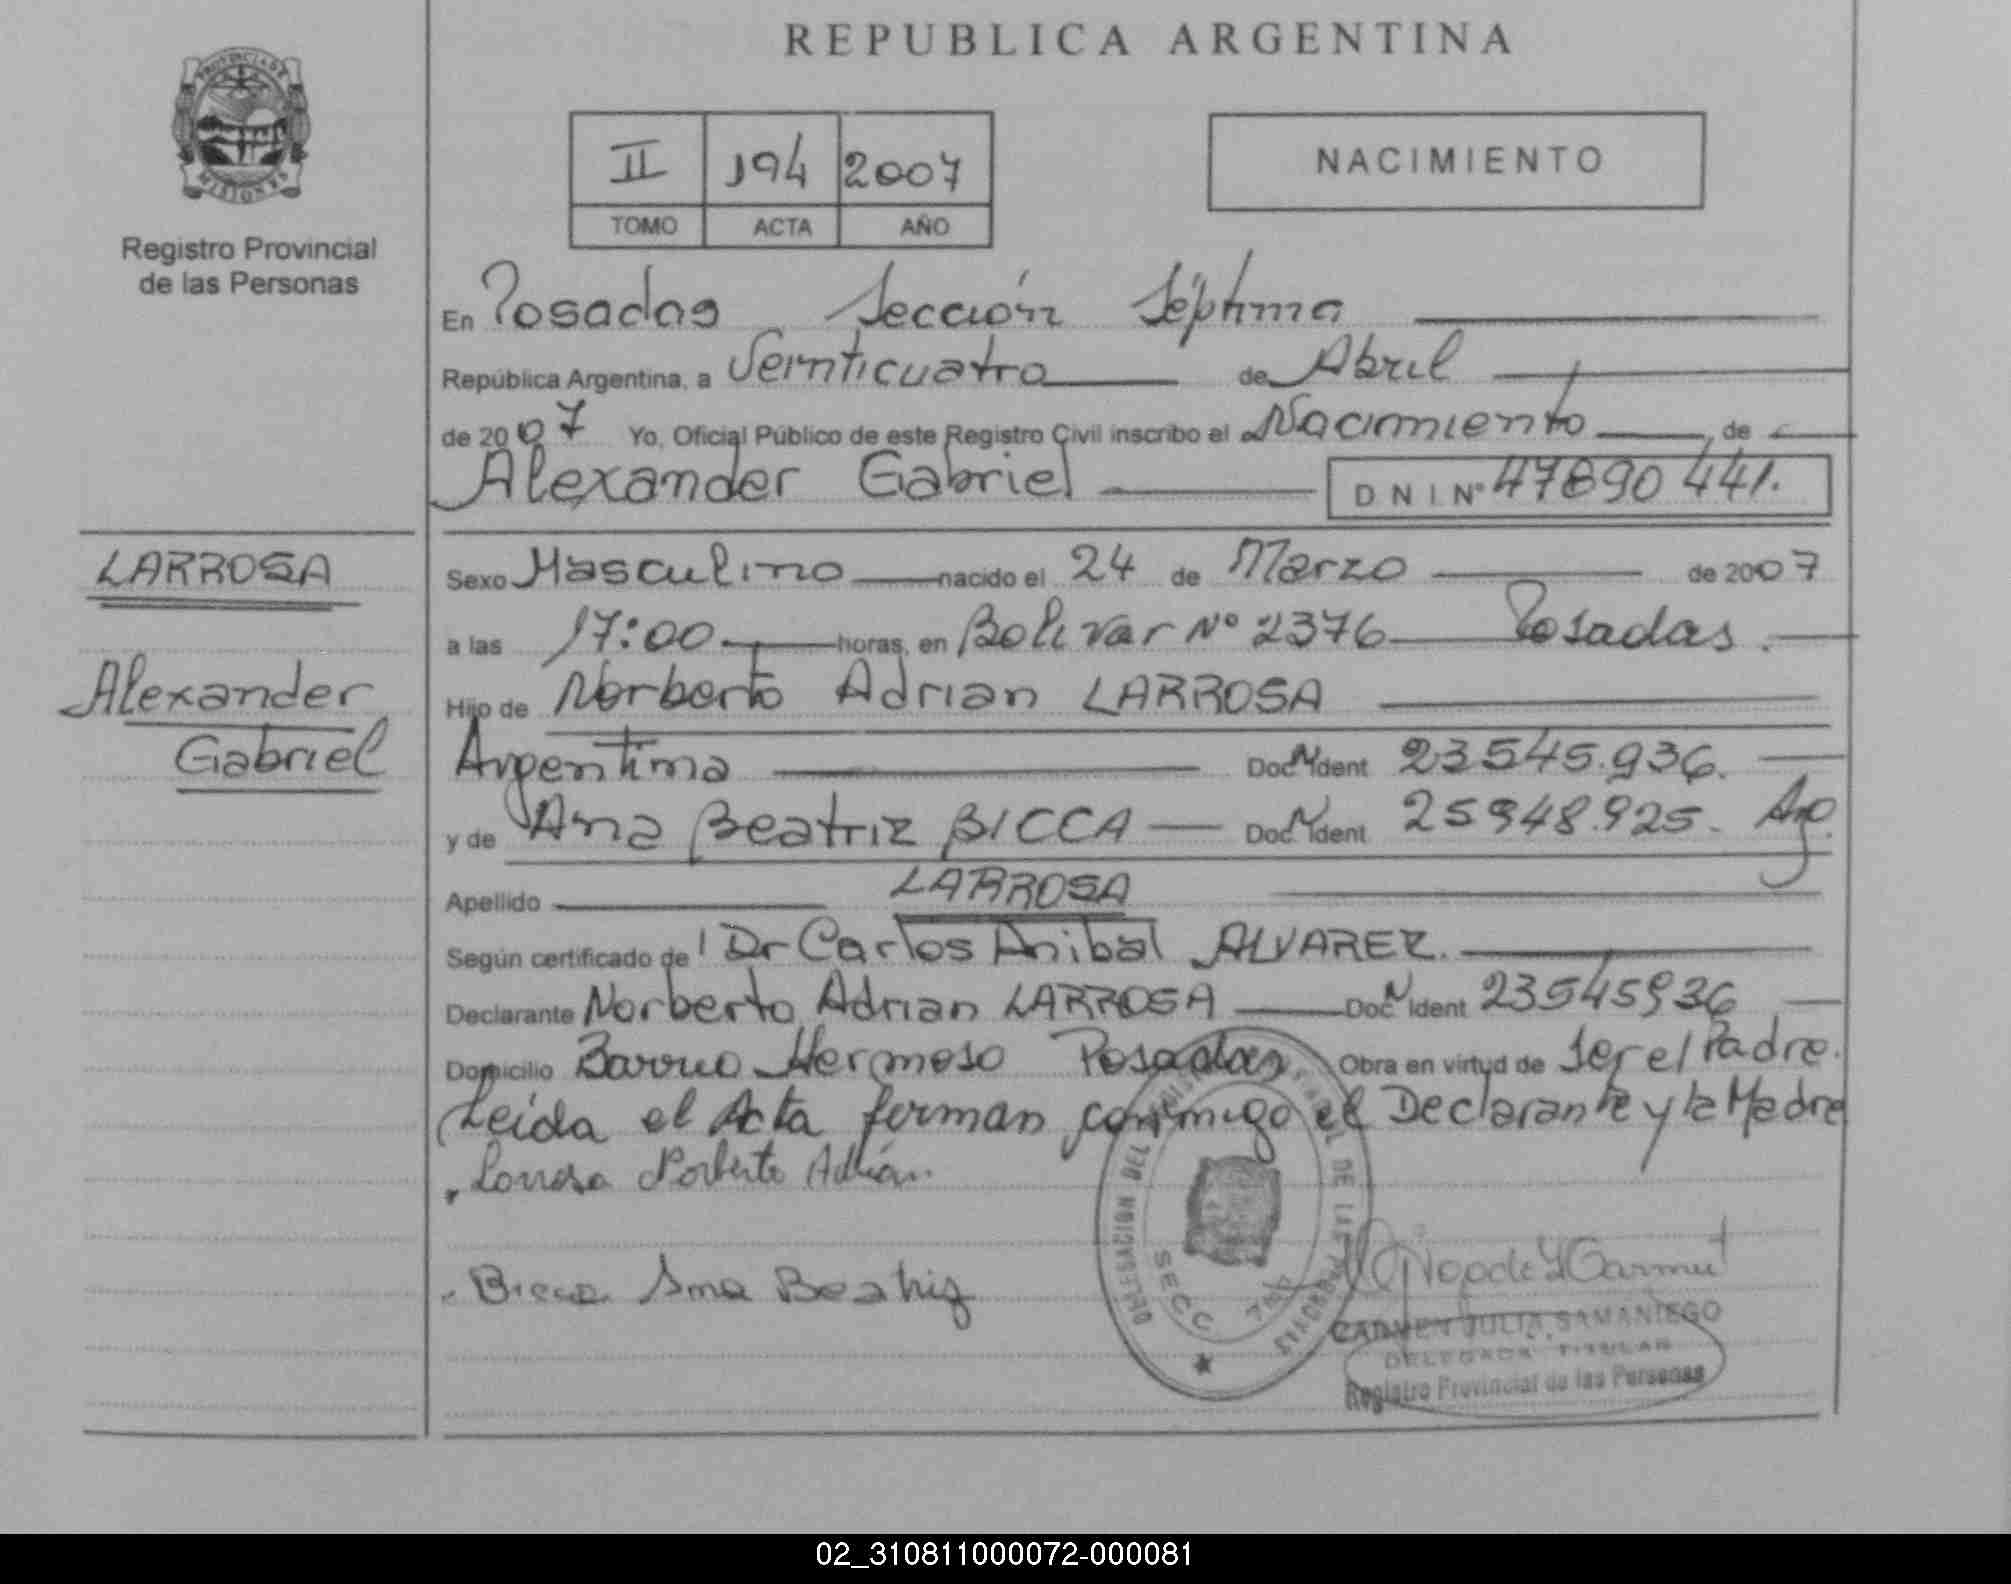 REPUBLICA ARGENTINA
PROVINCIA DE
MISIONES
Registro Provincial
de las Personas
II 194 2007
TOMO ACTA AÑO
NACIMIENTO
En Posadas Sección Séptima
República Argentina, a Veinticuatro de Abril
de 2007 Yo, Oficial Público de este Registro Civil inscribo el Nacimiento, de
Alexander Gabriel DNI Nº 47890441.
LARROSA
Alexander
Gabriel
Sexo Masculino nacido el 24 de Marzo de 2007
a las 17:00 horas, en Bolivar Nº 2376 Posadas.
Hijo de Norberto Adrian LARROSA
Argentina Doc N Ident 23545.936.
y de Ana Beatriz BICCA Doc N Ident 25948.925. Arg.
Apellido LARROSA
Según certificado de l Dr Carlos Anibal ALVAREZ.
Declarante Norberto Adrian LARROSA Doc N Ident 23545936
Domicilio Barrio Hermoso Posadas Obra en virtud de Ser el Padre.
Leida el Acta firman conmigo el Declarante y la Madre
Larrosa Norberto Adrián
Bicca Ana Beatriz
DELEGACION DEL DE LAS
SECC 7MA
CARMEN JULIA SAMANIEGO
DELEGADA TITULAR
Registro Provincial de las Personas
02_310811000072-000081